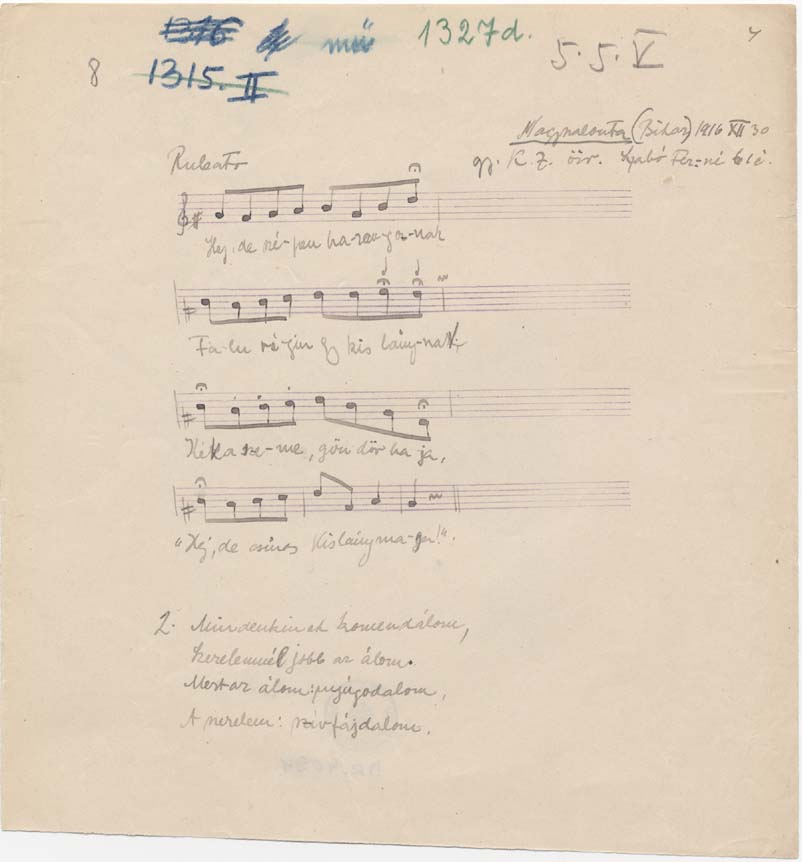 1316 mű 1327d.
5. 5. V
8 1315. II
Magnalonta (Bihar) 1916 XII 30
Rubato
gy. K. Z. özv. Szabó Fer=né
Hej, de szé-pen ha-ran-goz-nak
Fa-lu vé-gin egy kis lány-nak,
Kék a sze-me, gön dör ha ja,
"Hej, de csinos kislány ma-ga!".
2. Mindenkinek komendálom,
Szerelemnél jobb az álom.
Mert az álom: nyúgodalom,
A szerelem: szívfájdalom.